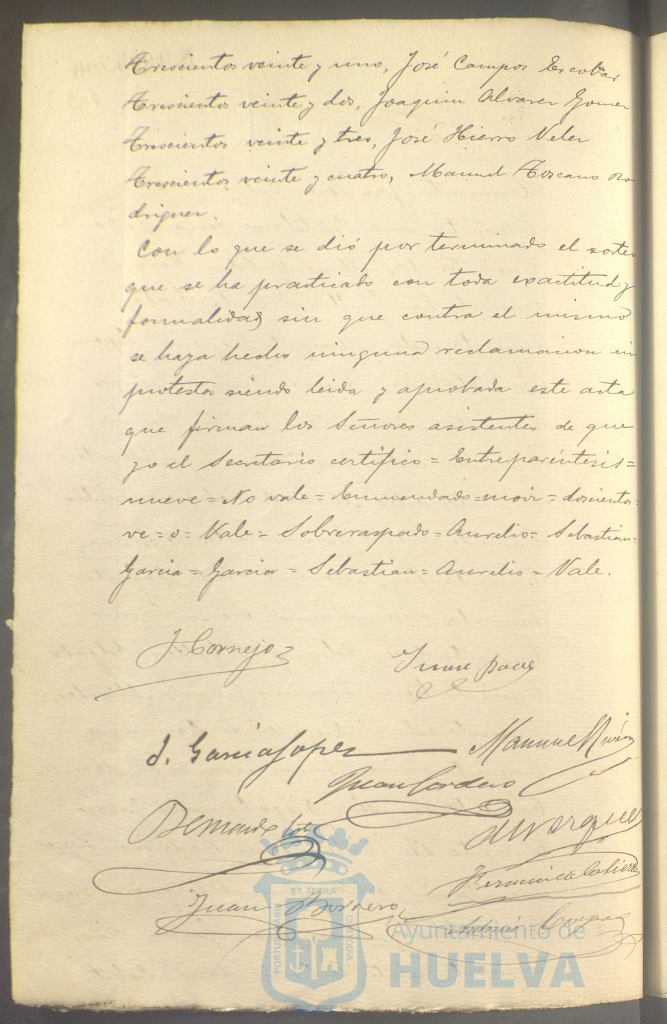 Trescientos veinte y uno, José Campos Escobar
Trescientos veinte y dos, Joaquin Alvarez Gomez
Trescientos veinte y tres, José Hierro Velez
Trescientos veinte y cuatro, Manuel Toscano Ro
driguez.
Con lo que se dió por terminado el sorteo
que se ha practicado con toda exactitud y
formalidad sin que contra el mismo
se haya hecho ninguna reclamacion ni
protesta siendo leida y aprobada este acta
que firman los Señores asistentes de que
yo el Secretario certifico = Entreparéntesis =
nueve = No vale = Enmendado = = doscientos =
ve = o = Vale = Sobreraspado = Aurelio = Sebastian =
Garcia = Garcia = Sebastian = Aurelio = Vale.
J. Cornejo
Juan
J. Garcia Lopez
Manuel
Juan Cordero
Bernardo
Vazquez
Juan Borrero
ET TERRA
PORTUS MARIS
CUSTODIA
Ayuntamiento de
HUELVA